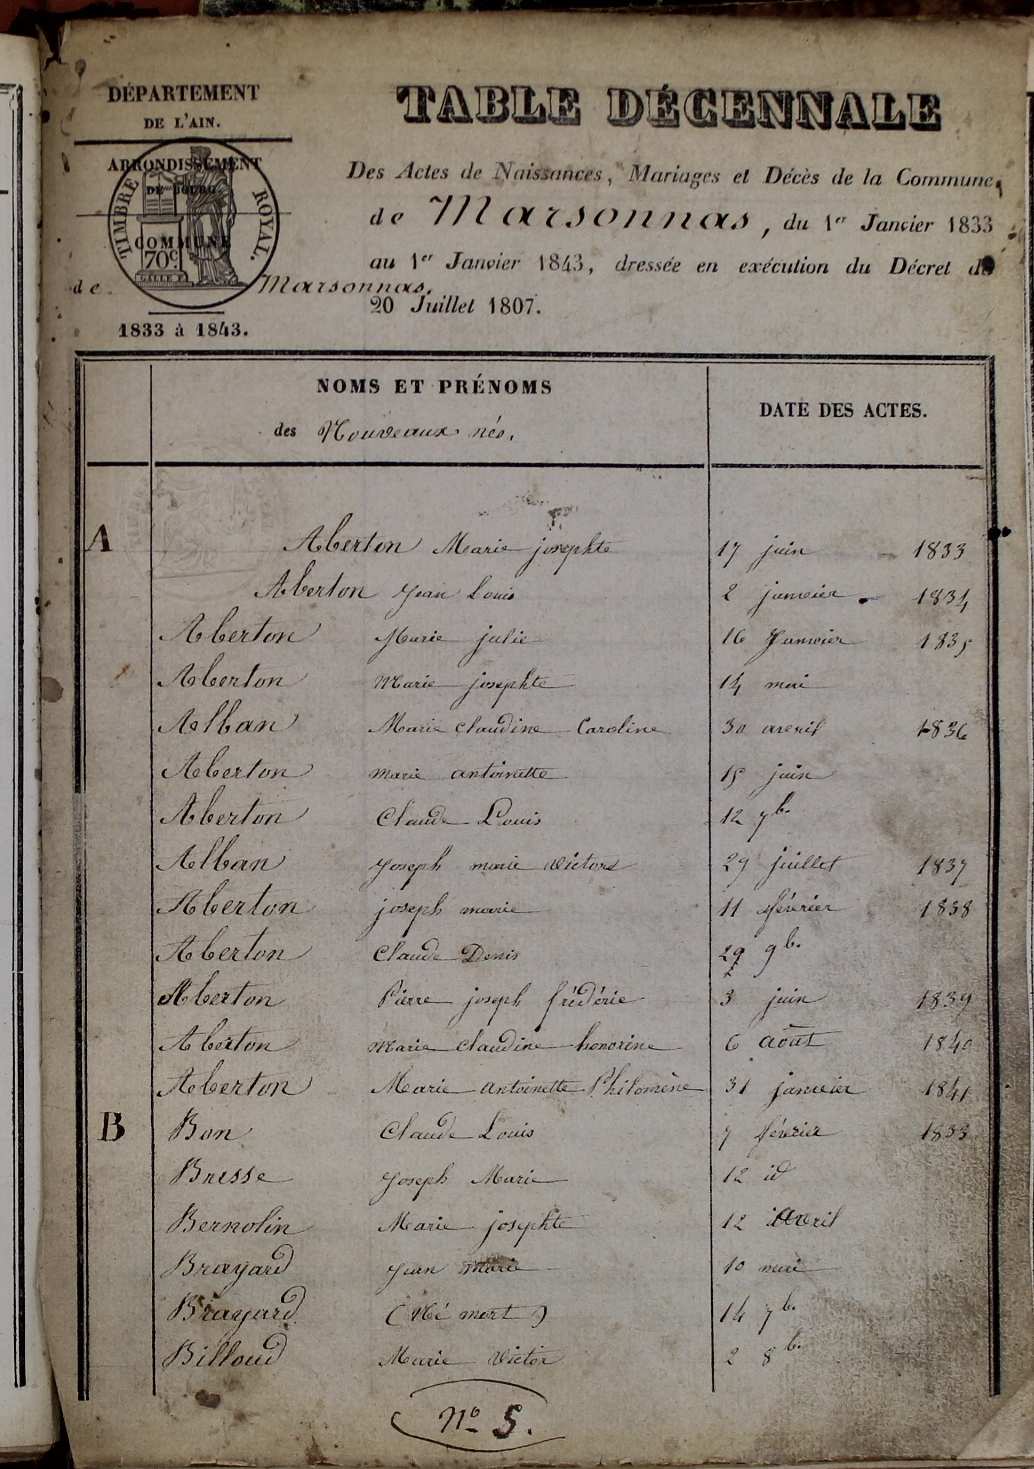 DÉPARTEMENT
DE L'AIN.
ARRONDISSEMENT
DE BOURG
TIMBRE ROYAL.
COMMUNE
70c
de Marsonnas.
1833 à 1843.
TABLE DÉCENNALE
Des Actes de Naissances, Mariages et Décès de la Commune
de Marsonnas, du 1er Janvier 1833
au 1er Janvier 1843, dressée en exécution du Décret du
20 Juillet 1807.
NOMS ET PRÉNOMS
des Nouveaux nés.
DATE DES ACTES.
A Aberton Marie josephte 17 juin 1833
Aberton Jean Louis 2 janvier 1834
Aberton Marie julie 16 Janvier 1835
Aberton Marie josephte 14 mai
Alban Marie Claudine Caroline 30 avril 1836
Aberton Marie antoinette 15 juin
Aberton Claude Louis 12 7b.
Alban Joseph marie victore 29 juillet 1837
Aberton joseph marie 11 février 1838
Aberton Claude Denis 29 9b.
Aberton Pierre joseph frédéric 3 juin 1839
Aberton Marie Claudine honorine 6 août 1840
Aberton Marie antoinette Philomène 31 janvier 1841
B Bon Claude Louis 7 février 1833
Bresse Joseph Marie 12 id
Bernolin Marie josephte 12 avril
Brayard Jean Marie 10 mai
Brayard (Né mort) 14 7b.
Billoud Marie Victor 2 8b.
No 5.